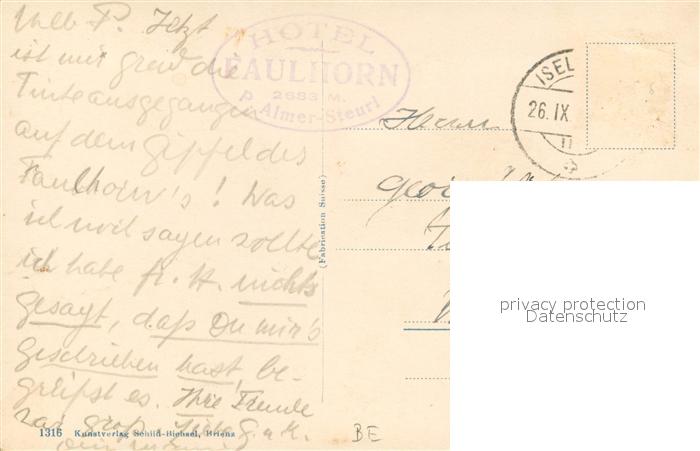 Jetzt
ist mir grad die
Tinte ausgegangen
auf dem Gipfel des
Faulhorn's! Was
ich noch sagen wollte
ich habe Fr. H. nichts
gesagt, daß Du mir's
geschrieben hast, be-
greifst es. Ihre Freude
war groß.
HOTEL
FAULHORN
2683 M.
P. Almer-Steuri
Herrn
ISEL
26. IX
(Fabrication Suisse)
privacy protection
Datenschutz
1316 Kunstverlag Schild-Bichsel, Brienz
BE